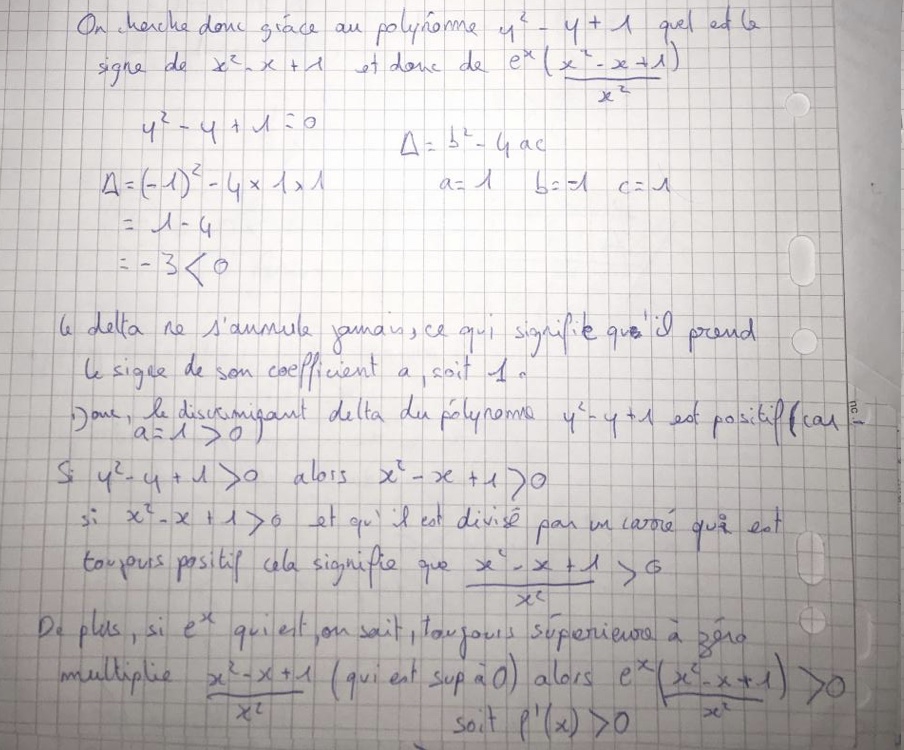 On cherche donc grâce au polynôme y² - y + 1 quel est le
signe de x² - x + 1 et donc de eˣ(x² - x + 1 / x²)
y² - y + 1 = 0
Δ = b² - 4ac
Δ = (-1)² - 4 × 1 × 1
a = 1 b = -1 c = 1
= 1 - 4
= -3 < 0
le delta ne s'annule jamais, ce qui signifie qu'il prend
le signe de son coefficient a, soit 1.
Donc, le discriminant delta du polynome y² - y + 1 est positif (car
a = 1 > 0)
Si y² - y + 1 > 0 alors x² - x + 1 > 0
si x² - x + 1 > 0 et qu'il est divisé par un carré qui est
toujours positif cela signifie que x² - x + 1 / x² > 0
De plus, si eˣ qui est, on sait, toujours supérieure à zéro
multiplie x² - x + 1 / x² (qui est sup à 0) alors eˣ(x² - x + 1 / x²) > 0
soit f'(x) > 0